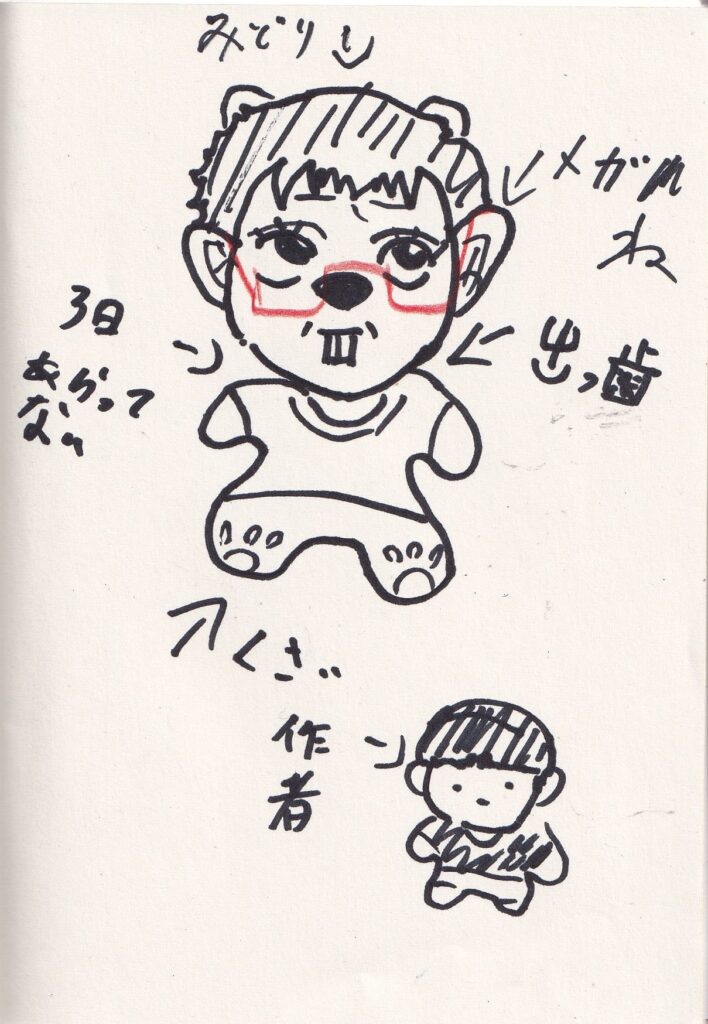 みどり
メガ
ね
3日
あらって
ない
出っ歯
くさい
作
者